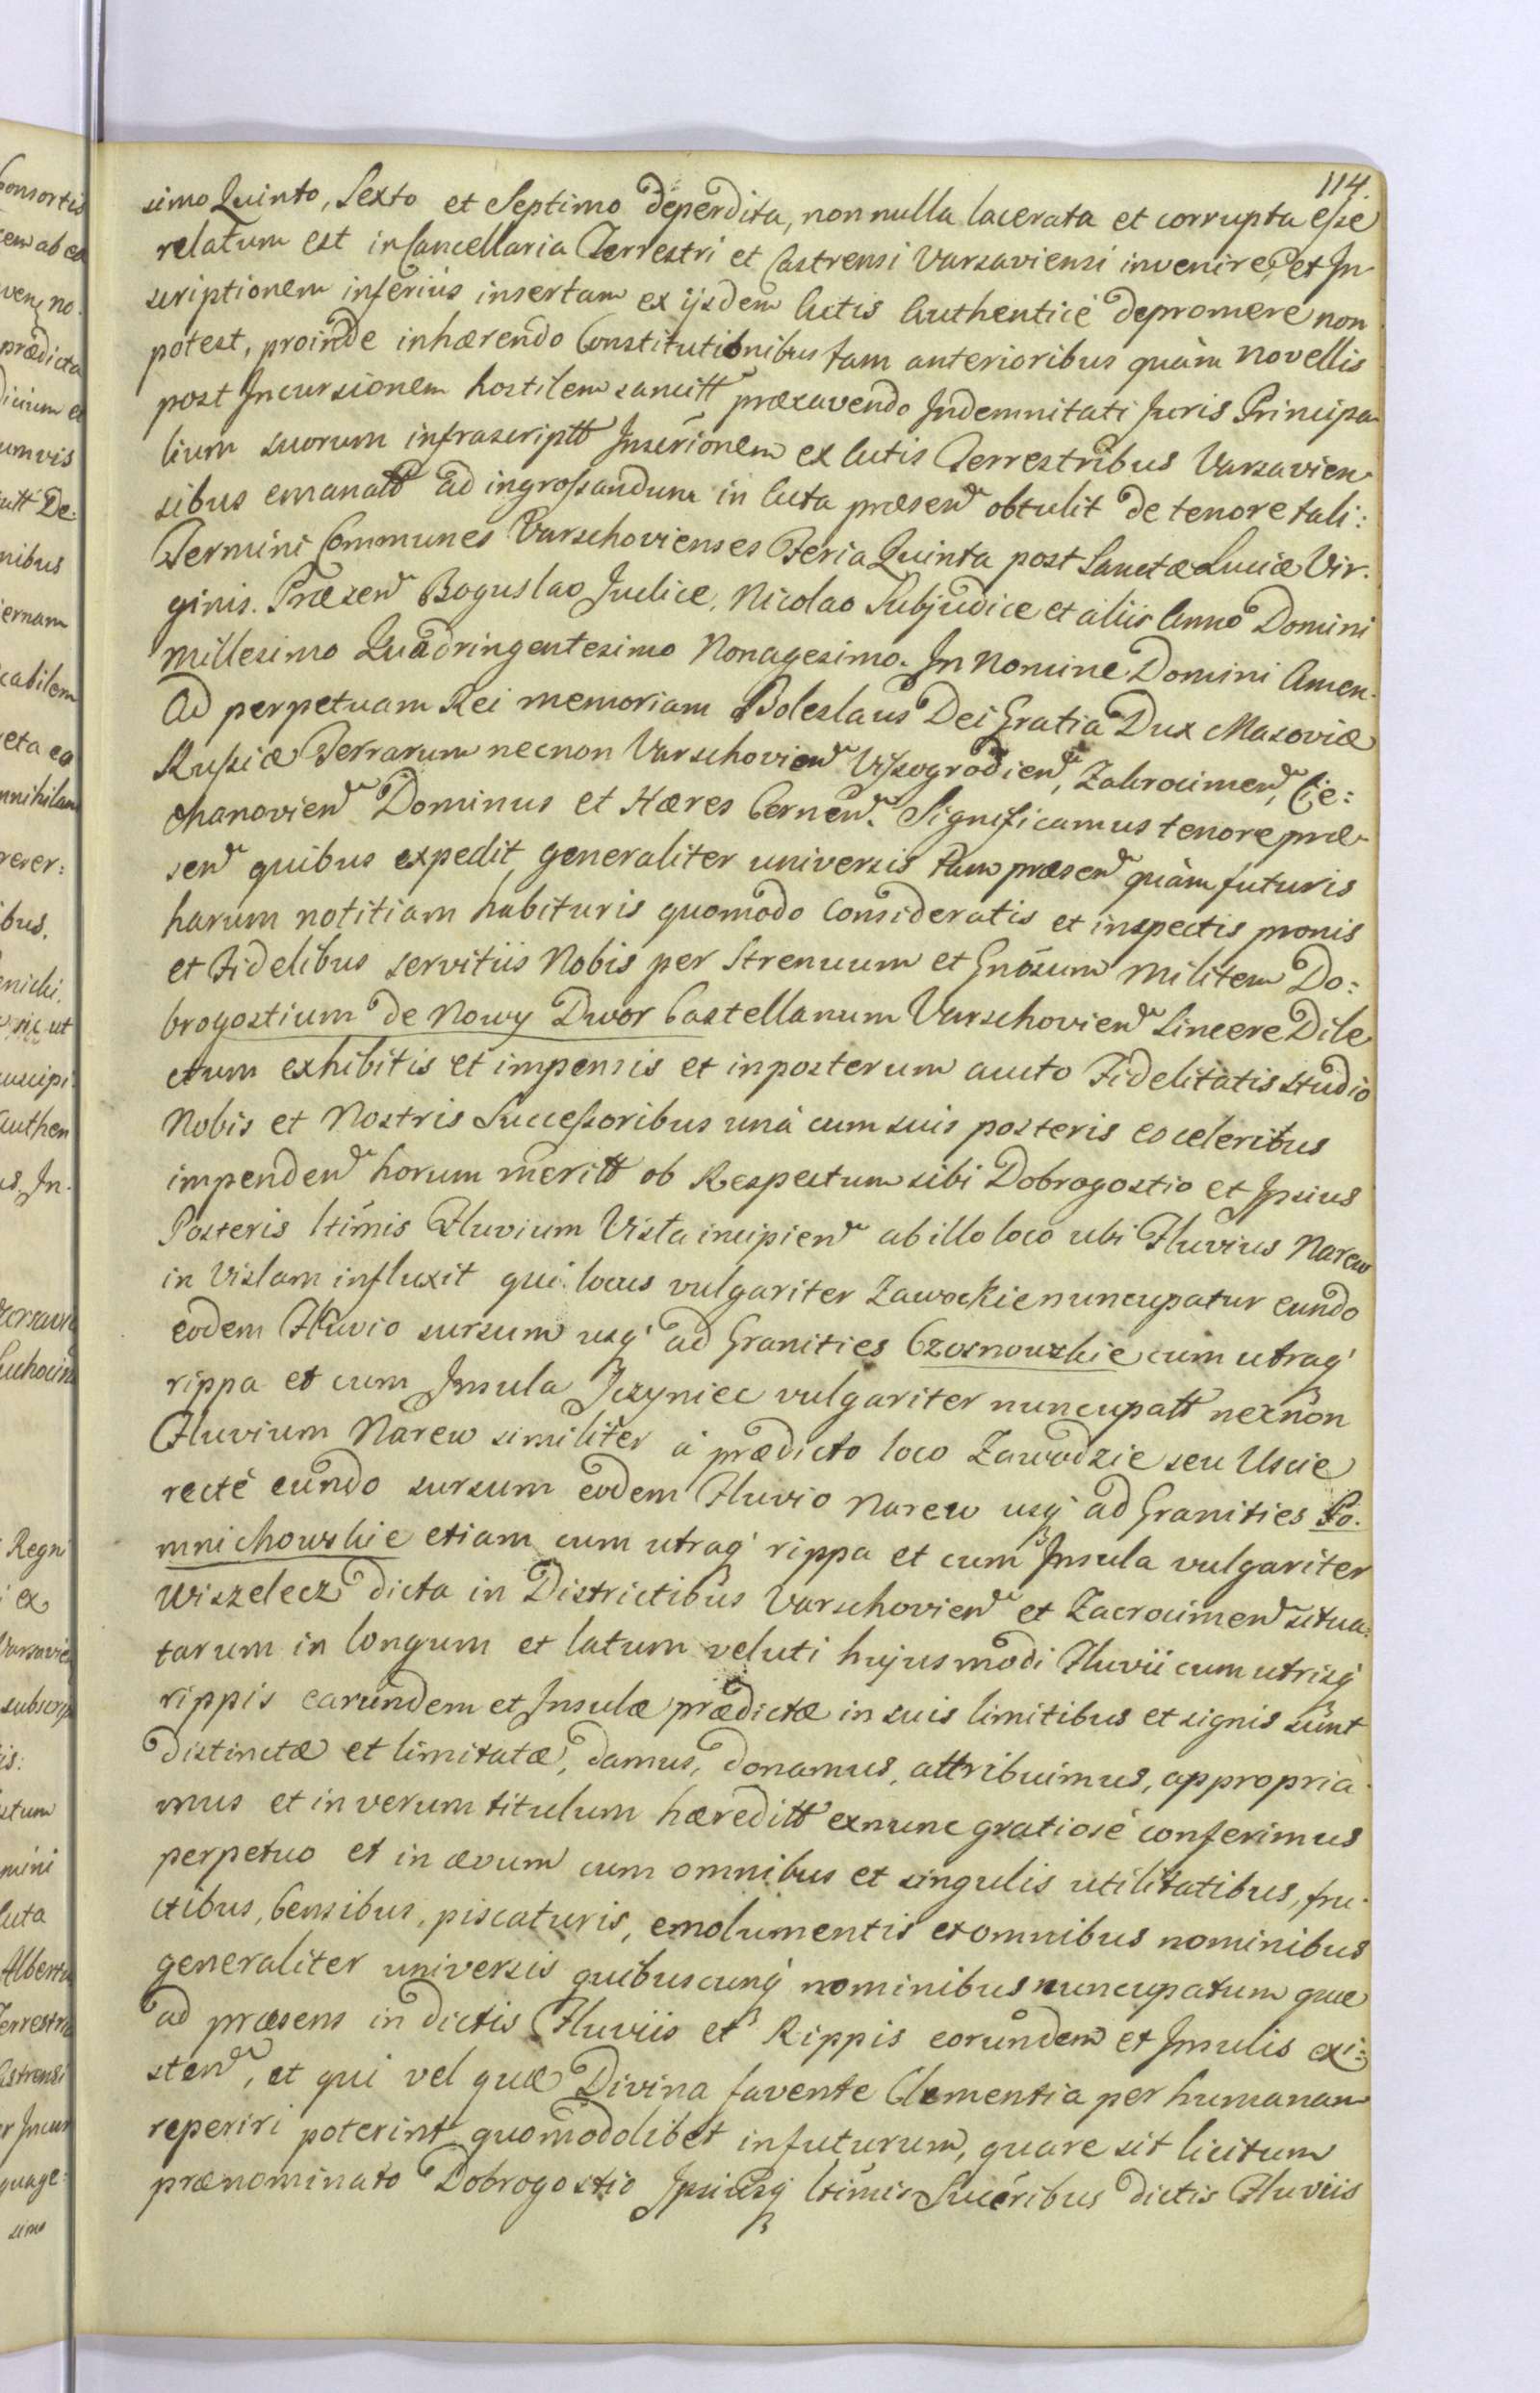 114.
simo Quinto, Sexto et Septimo deperdita, non nulla lacerata et corrupta esse
relatum est in Cancellaria Terrestri et Castrensi Varsaviensi invenire, et In
scriptionem inferius insertam ex ijsdem Actis Authenticè depromere non
potest, proinde inhærendo Constitutionibus tam anterioribus quàm novellis
post Incursionem hostilem sancitt præcavendo Indemnitati Juris Principa
lium suorum infrascriptt Inscrionem ex Actis Terrestribus Varsavien
sibus emanatt ad ingrossandum in Acta præsen obtulit de tenore tali:
Termini Communes Varschovienses Feria Quinta post Sanctæ Luciæ Vir.
ginis. Præsen Boguslao Judice, Nicolao Subjudice et aliis Anno Domini
Millesimo Quadringentesimo Nonagesimo. In Nomine Domini Amen.
Ad perpetuam Rei memoriam Boleslaus Dei Gratia Dux Masoviæ
Russiæ Terrarum necnon Varschovien Vissogrodien, Zakrocimen, Cie:
chanovien Dominus et Hæres Cernen. Significamus tenore præ
sen quibus expedit generaliter universis tam præsen quàm futuris
harum notitiam habituris quomodo Consideratis et inspectis pronis
et Fidelibus servitiis Nobis per Strenuum et Gnosum Militem Do:
brogostium de Nowy Dwor Castellanum Varschovien Sincere Dile
ctum exhibitis et impensis et inposterum aucto Fidelitatis studio
Nobis et Nostris Successoribus unà cum suis posteris eo celeribus
impenden horum meritt ob Respectum sibi Dobrogostio et Ipsius
Posteris ltimis Fluvium Visla incipien ab illo loco ubi Fluvius Narew
in Vislam influxit qui locus vulgariter Zawockie nuncupatur eundo
eodem Fluvio sursum usq ad Granities Czosnowskie cum utraq
rippa et cum Insula Jczyniec vulgariter nuncupatt necnon
Fluvium Narew similiter à prædicto loco Zawodzie seu Uscie
rectè eundo sursum eodem Fluvio Narew usq ad Granities Po.
mnichowskie etiam cum utraq rippa et cum Insula vulgariter
Wiszelecz dicta in Districtibus Varschovien et Zacrocimen situa:
tarum in longum et latum veluti hujusmodi Fluvii cum utrisq
rippis earundem et Insulæ prædictæ in suis limitibus et signis sunt
distinctæ et limitatæ, damus, donamus, attribuimus, appropria
mus et in verum titulum hæreditt exnunc gratiosè conferimus
perpetuo et in ævum cum omnibus et singulis utilitatibus, fru.
ctibus, Censibus, piscaturis, emolumentis et omnibus nominibus
generaliter universis quibuscunq nominibus nuncupatum quæ
ad præsens in dictis Fluviis et Rippis eorundem et Insulis exi:
sten, et qui vel quæ Divina favente Clementia per humanam
reperiri poterint quomodolibet infuturum, quare sit licitum
prænominato Dobrogostio Ipsiusq ltimis Succribus dictis Fluviis